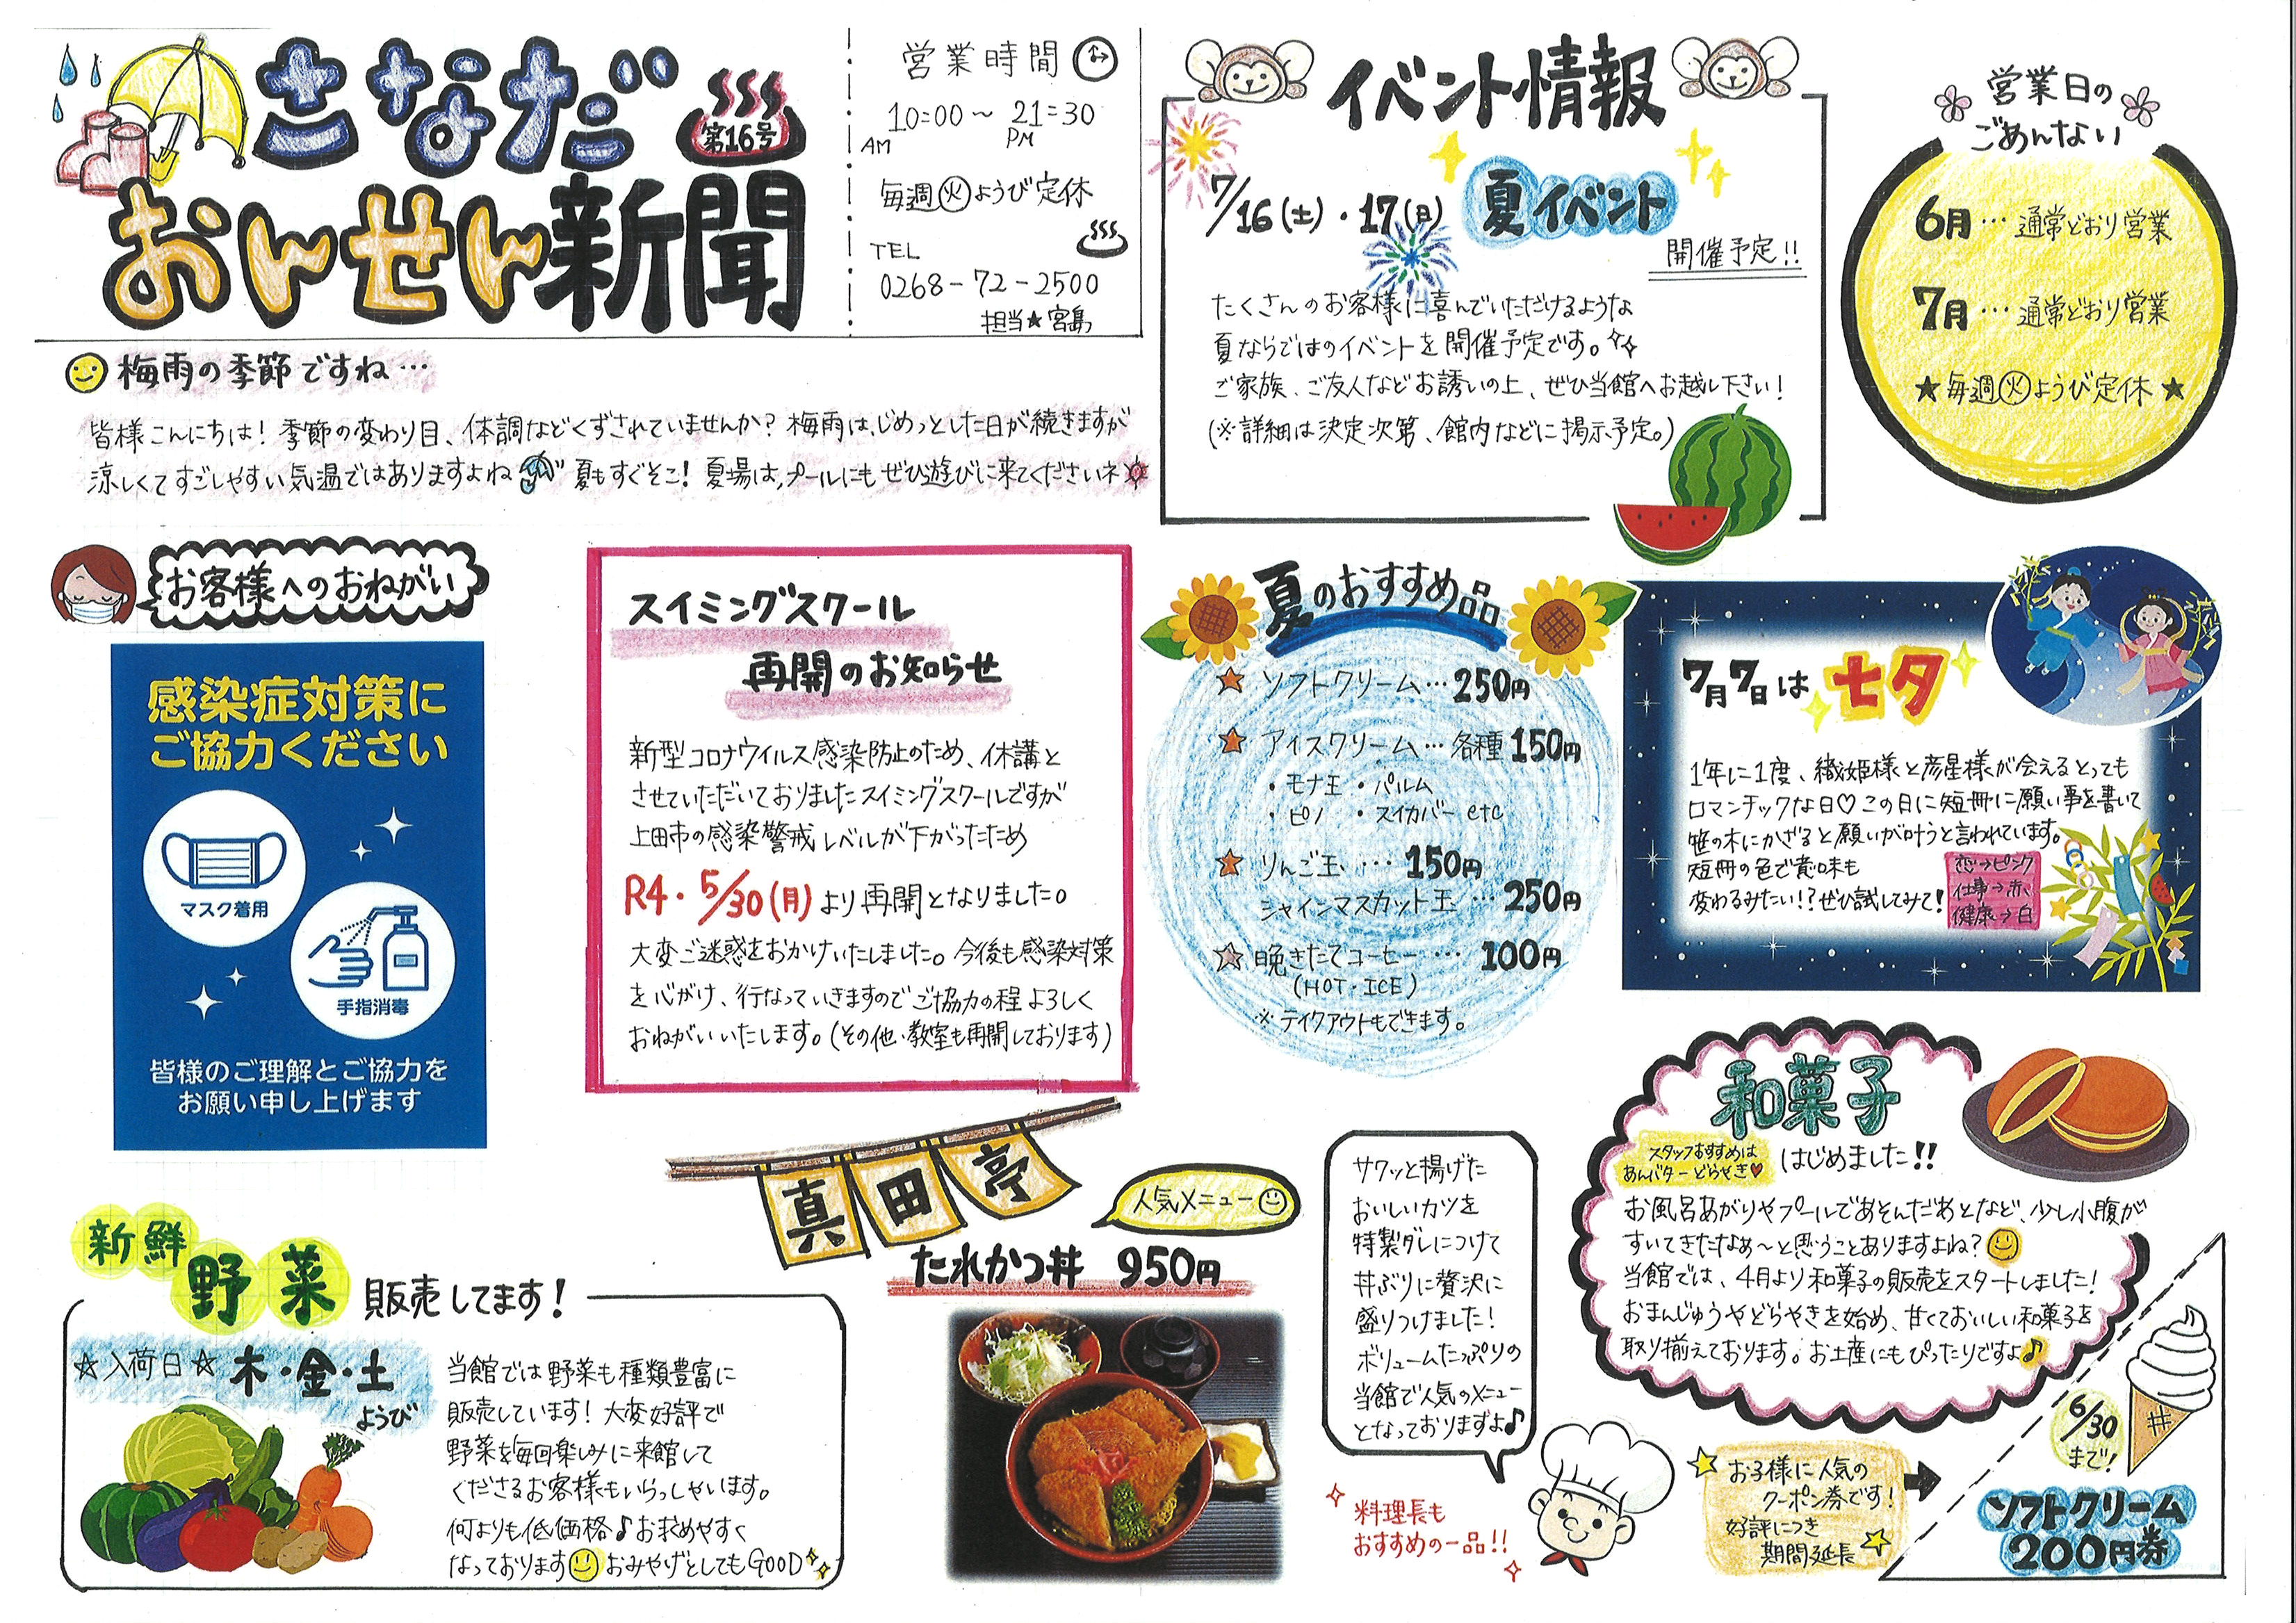 さなだ
おんせん新聞
第16号
営業時間
10:00～21:30
AM PM
毎週㊋ようび定休
TEL
0268-72-2500
担当★宮島
梅雨の季節ですね…
皆様こんにちは！季節の変わり目、体調などくずされていませんか？梅雨は、じめっとした日が続きますが
涼しくてすごしやすい気温ではありますよね 夏もすぐそこ！夏場は、プールにもぜひ遊びに来てくださいネ
イベント情報
7/16(土)・17(日) 夏イベント
開催予定!!
たくさんのお客様に喜んでいただけるような
夏ならではのイベントを開催予定です。
ご家族、ご友人などお誘いの上、ぜひ当館へお越し下さい！
(※詳細は決定次第、館内などに掲示予定。)
営業日の
ごあんない
6月…通常どおり営業
7月…通常どおり営業
★毎週㊋ようび定休★
お客様へのおねがい
感染症対策に
ご協力ください
マスク着用
手指消毒
皆様のご理解とご協力を
お願い申し上げます
スイミングスクール
再開のお知らせ
新型コロナウイルス感染防止のため、休講と
させていただいておりましたスイミングスクールですが
上田市の感染警戒レベルが下がったため
R4・5/30(月)より再開となりました。
大変ご迷惑をおかけいたしました。今後も感染対策
を心がけ、行なっていきますのでご協力の程よろしく
おねがいいたします。(その他、教室も再開しております)
夏のおすすめ品
★ソフトクリーム…250円
★アイスクリーム…各種150円
・モナ王 ・パルム
・ピノ ・スイカバー etc
★りんご玉…150円
シャインマスカット玉…250円
☆挽きたてコーヒー…100円
(HOT・ICE)
※テイクアウトもできます。
7月7日は七夕
1年に1度、織姫様と彦星様が会えるとっても
ロマンチックな日♡この日に短冊に願い事を書いて
笹の木にかざると願いが叶うと言われています。
短冊の色で意味も
変わるみたい!?ぜひ試してみて！
恋→ピンク
仕事→赤
健康→白
和菓子
はじめました!!
スタッフおすすめは
あんバターどらやき♥
お風呂あがりやプールであそんだあとなど、少し小腹が
すいてきたなぁ～と思うことありますよね？
当館では、4月より和菓子の販売をスタートしました！
おまんじゅうやどらやきを始め、甘くておいしい和菓子を
取り揃えております。お土産にもぴったりですよ♪
新鮮
野菜 販売してます！
☆入荷日☆木・金・土
ようび
当館では野菜も種類豊富に
販売しています！大変好評で
野菜を毎回楽しみに来館して
くださるお客様もいらっしゃいます。
何よりも低価格♪お求めやすく
なっております おみやげとしてもGOOD
真田亭
人気メニュー
たれかつ丼 950円
サクッと揚げた
おいしいカツを
特製ダレにつけて
丼ぶりに贅沢に
盛りつけました！
ボリュームたっぷりの
当館で人気のメニュー
となっておりますよ♪
料理長も
おすすめの一品!!
お子様に人気の
クーポン券です！
好評につき
期間延長
6/30
まで！
ソフトクリーム
200円券